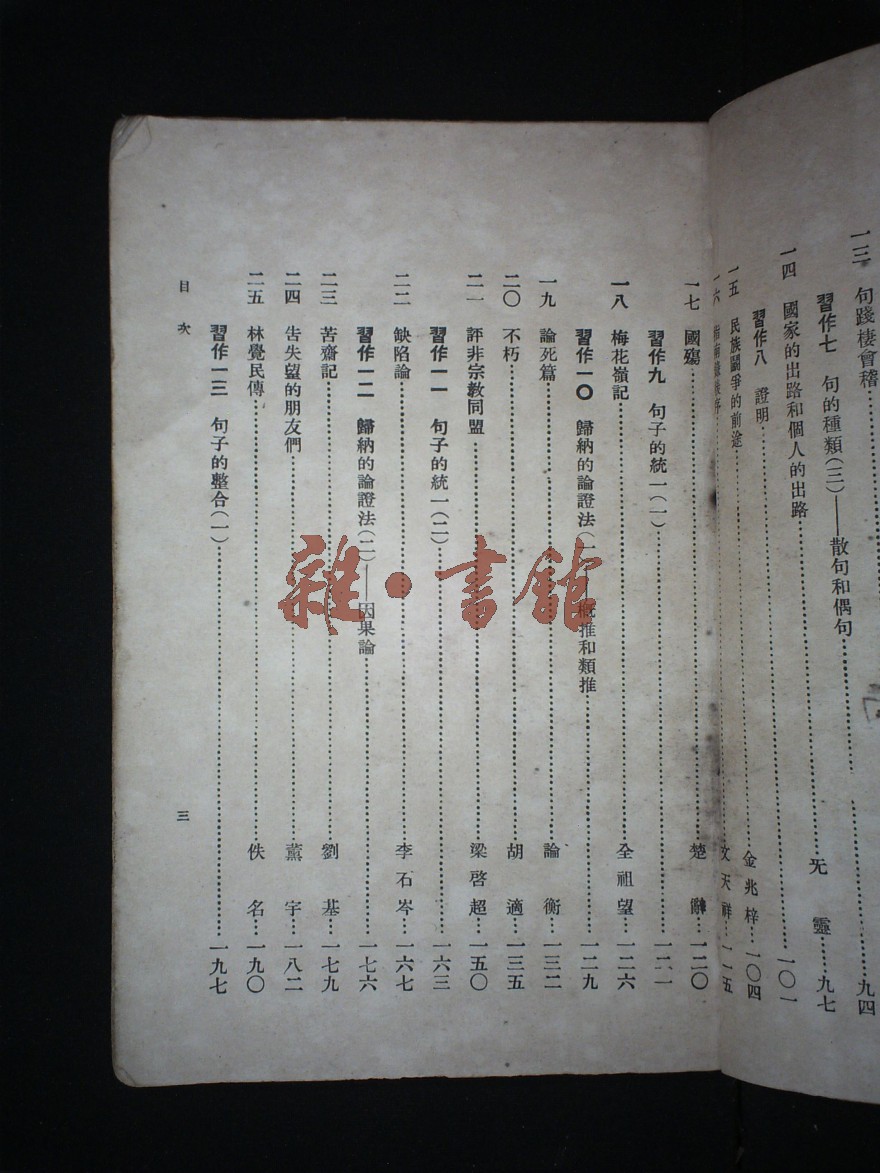 一三 句踐棲會稽……九四
習作七 句的種類(三)——散句和偶句……
一四 國家的出路和個人的出路……旡靈……九七
習作八 證明……一〇一
一五 民族鬭爭的前途……金兆梓……一〇四
一六 指南錄後序……文天祥……一一五
一七 國殤……楚辭……一二〇
習作九 句子的統一(一)……一二一
一八 梅花嶺記……全祖望……一二六
習作一〇 歸納的論證法(一)——概推和類推……一二九
一九 論死篇……論衡……一三二
二〇 不朽……胡適……一三五
二一 評非宗教同盟……梁啓超……一五〇
習作一一 句子的統一(二)……一六三
二二 缺陷論……李石岑……一六七
習作一二 歸納的論證法(二)——因果論……一七六
二三 苦齋記……劉基……一七九
二四 告失望的朋友們……薰宇……一八二
二五 林覺民傳……佚名……一九〇
習作一三 句子的整合(一)……一九七
目次
三
雜·書館